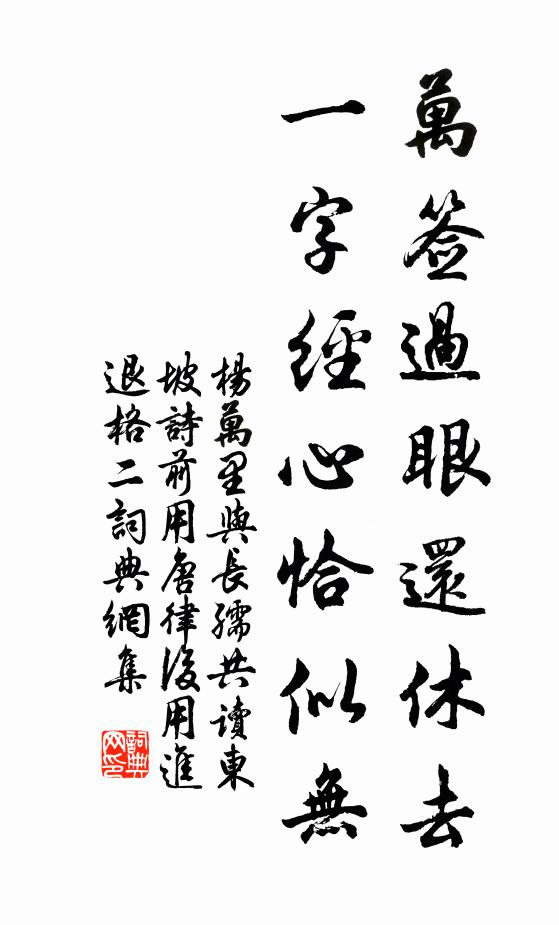 萬签過眼還休去
一字經心恰似無
楊萬里與長孺共讀東
坡詩前用唐律後用進
退格二詞典網集
詞典
网印